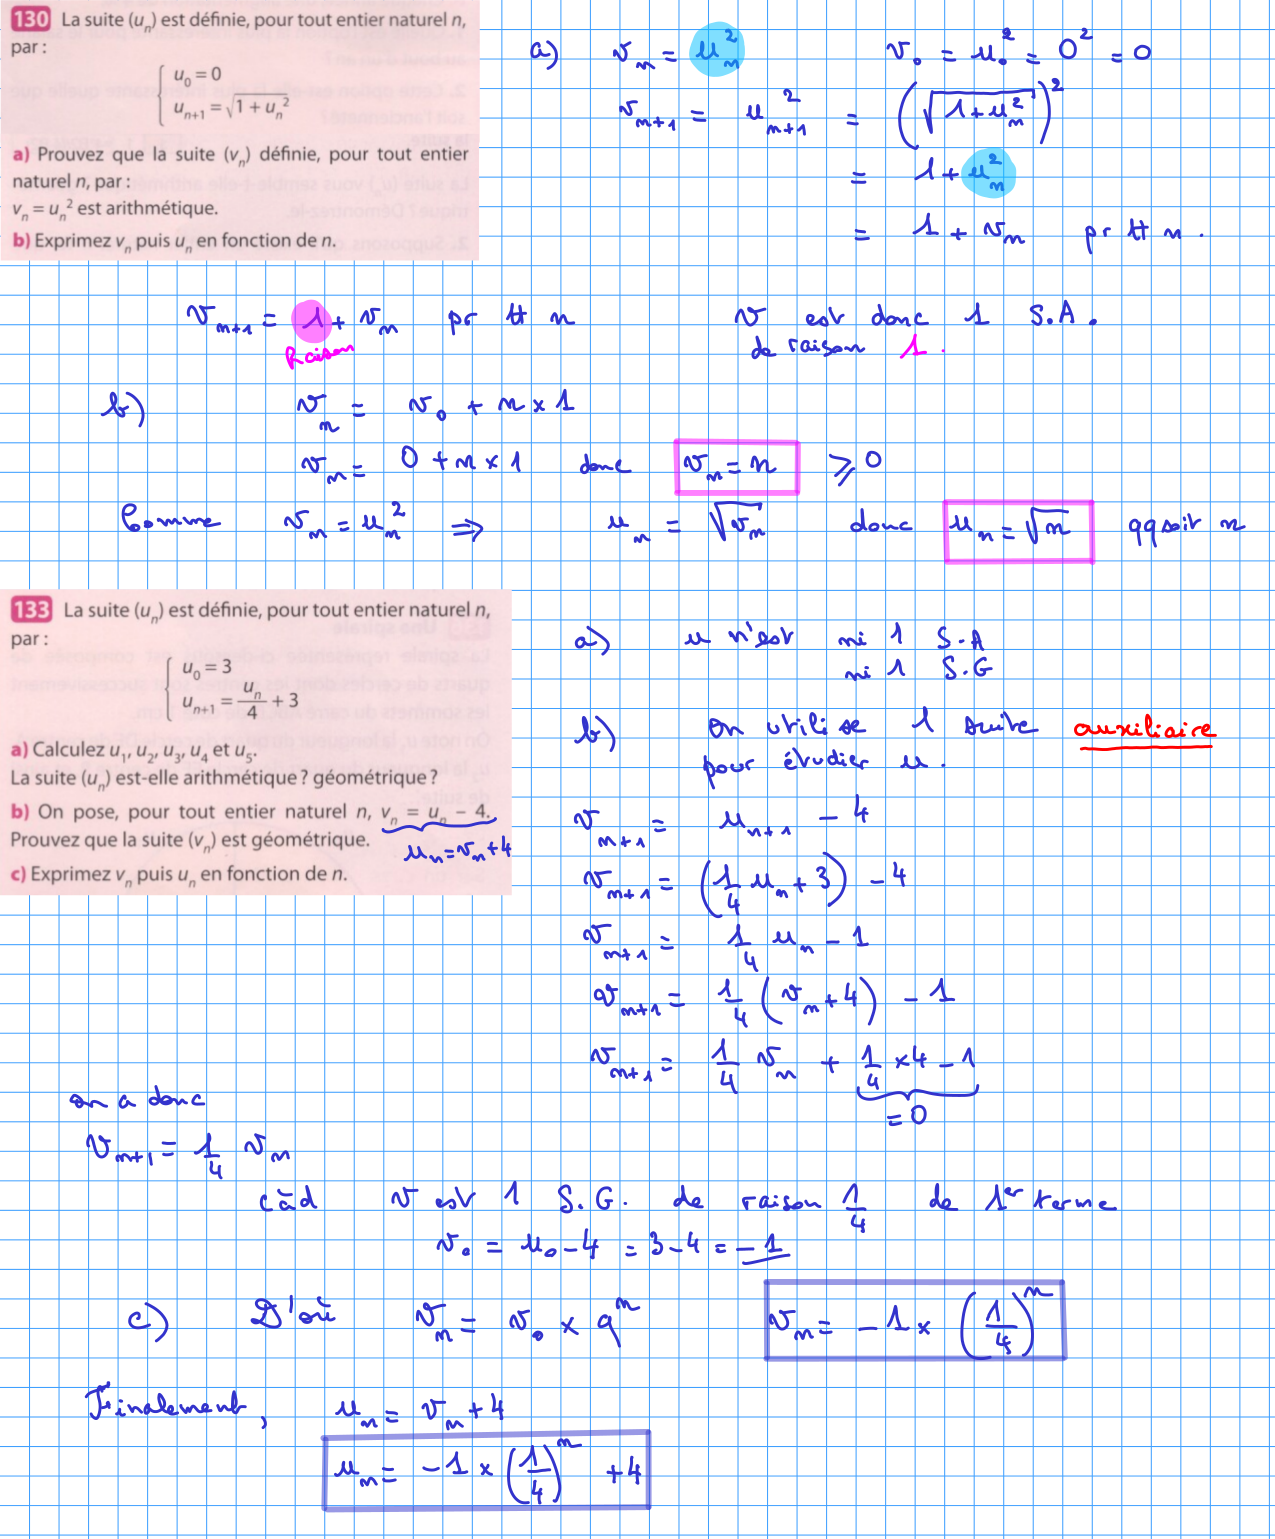 130 La suite (uₙ) est définie, pour tout entier naturel n,
par :
u₀ = 0
uₙ₊₁ = √(1 + uₙ²)
a) Prouvez que la suite (vₙ) définie, pour tout entier
naturel n, par :
vₙ = uₙ² est arithmétique.
b) Exprimez vₙ puis uₙ en fonction de n.
a) vₙ = uₙ² v₀ = u₀² = 0² = 0
vₙ₊₁ = uₙ₊₁² = (√(1 + uₙ²))²
= 1 + uₙ²
= 1 + vₙ pr tt n.
vₙ₊₁ = 1 + vₙ pr tt n v est donc 1 S.A.
Raison de raison 1.
b) vₙ = v₀ + n × 1
vₙ = 0 + n × 1 donc vₙ = n ⩾ 0
Comme vₙ = uₙ² ⇒ uₙ = √vₙ donc uₙ = √n qqsoit n
133 La suite (uₙ) est définie, pour tout entier naturel n,
par :
u₀ = 3
uₙ₊₁ = uₙ/4 + 3
a) Calculez u₁, u₂, u₃, u₄ et u₅.
La suite (uₙ) est-elle arithmétique ? géométrique ?
b) On pose, pour tout entier naturel n, vₙ = uₙ – 4.
Prouvez que la suite (vₙ) est géométrique.
uₙ = vₙ + 4
c) Exprimez vₙ puis uₙ en fonction de n.
a) u n'est ni 1 S.A
ni 1 S.G
b) On utilise 1 suite auxiliaire
pour étudier u.
vₙ₊₁ = uₙ₊₁ – 4
vₙ₊₁ = (1/4 uₙ + 3) – 4
vₙ₊₁ = 1/4 uₙ – 1
vₙ₊₁ = 1/4 (vₙ + 4) – 1
vₙ₊₁ = 1/4 vₙ + 1/4 × 4 – 1
= 0
on a donc
vₙ₊₁ = 1/4 vₙ
càd v est 1 S.G. de raison 1/4 de 1er terme
v₀ = u₀ – 4 = 3 – 4 = – 1
c) D'où vₙ = v₀ × qⁿ vₙ = – 1 × (1/4)ⁿ
Finalement, uₙ = vₙ + 4
uₙ = – 1 × (1/4)ⁿ + 4